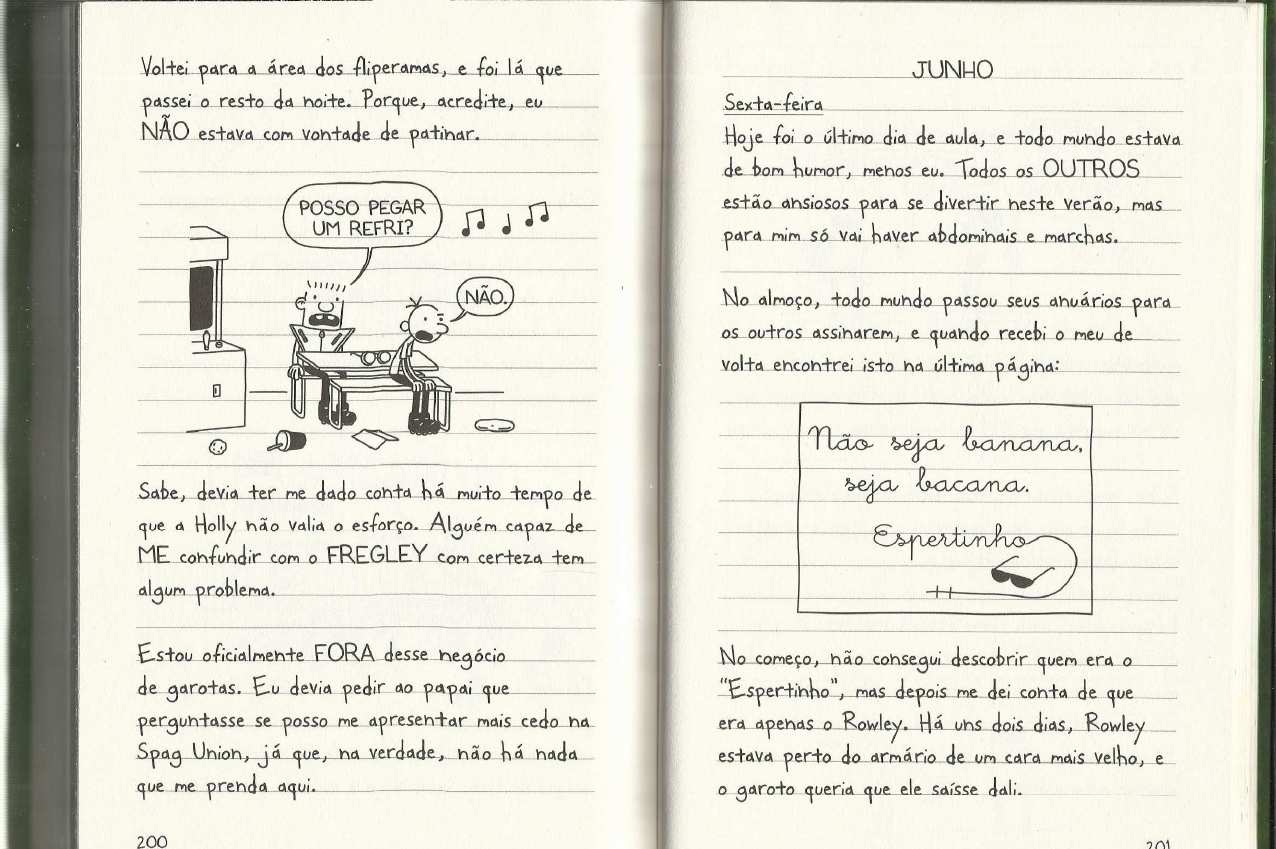 Voltei para a área dos fliperamas, e foi lá que
passei o resto da noite. Porque, acredite, eu
NÃO estava com vontade de patinar.
POSSO PEGAR
UM REFRI?
NÃO.
Sabe, devia ter me dado conta há muito tempo de
que a Holly não valia o esforço. Alguém capaz de
ME confundir com o FREGLEY com certeza tem
algum problema.
Estou oficialmente FORA desse negócio
de garotas. Eu devia pedir ao papai que
perguntasse se posso me apresentar mais cedo na
Spag Union, já que, na verdade, não há nada
que me prenda aqui.
200
JUNHO
Sexta-feira
Hoje foi o último dia de aula, e todo mundo estava
de bom humor, menos eu. Todos os OUTROS
estão ansiosos para se divertir neste verão, mas
para mim só vai haver abdominais e marchas.
No almoço, todo mundo passou seus anuários para
os outros assinarem, e quando recebi o meu de
volta encontrei isto na última página:
Não seja banana,
seja bacana.
Espertinho
No começo, não consegui descobrir quem era o
"Espertinho", mas depois me dei conta de que
era apenas o Rowley. Há uns dois dias, Rowley
estava perto do armário de um cara mais velho, e
o garoto queria que ele saísse dali.
201